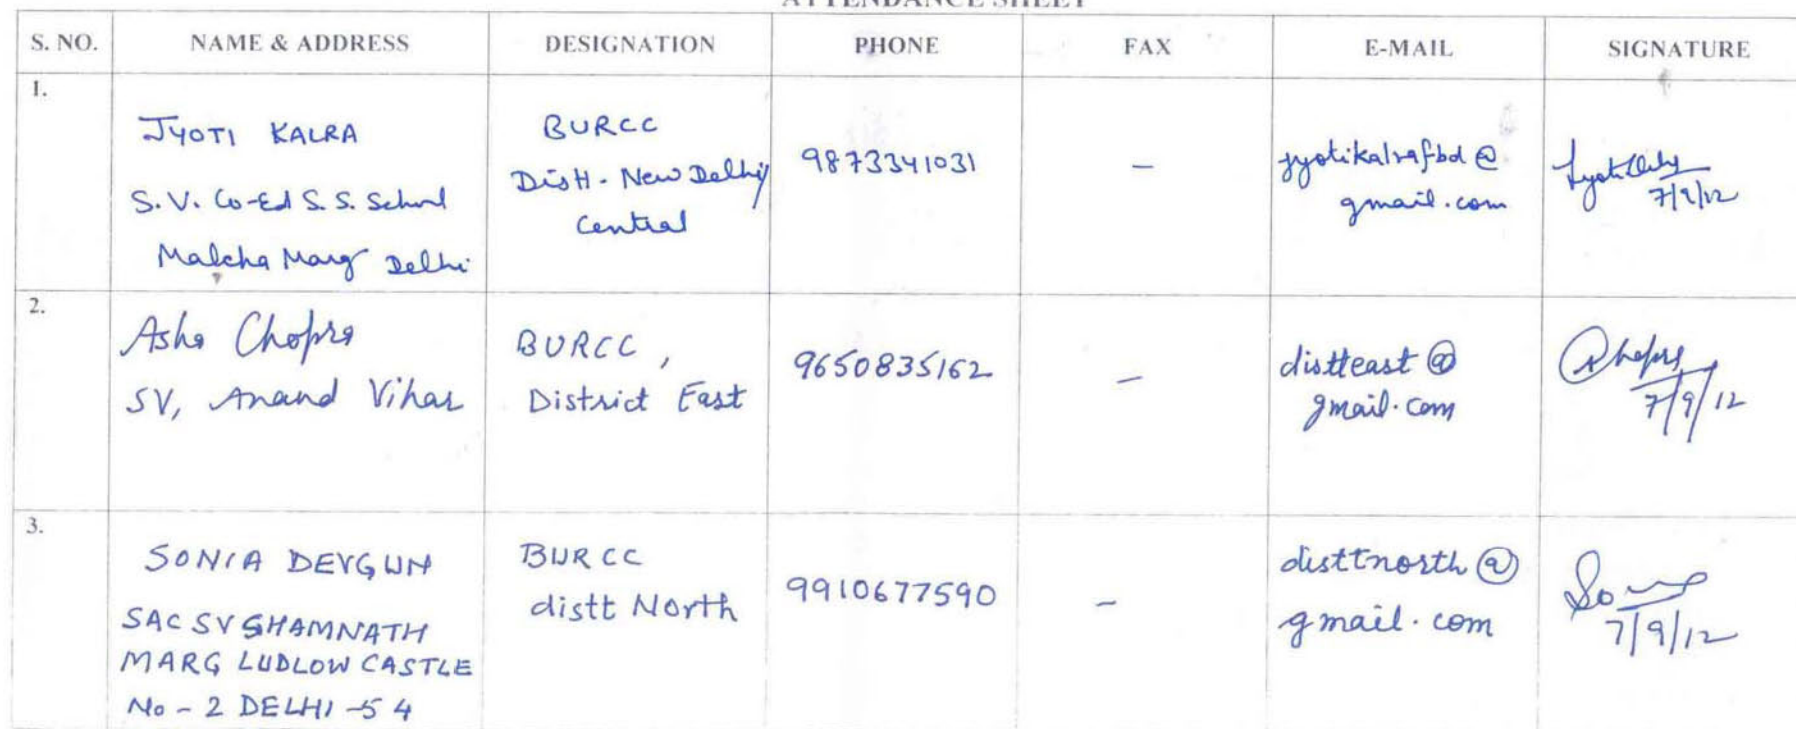 ATTENDANCE SHEET
S. NO. NAME & ADDRESS DESIGNATION PHONE FAX E-MAIL SIGNATURE
1.
JYOTI KALRA
S.V. Co-Ed S.S. School
Malcha Marg Delhi
BURCC
Distt - New Delhi/
Central
9873341031
–
jyotikalrafbd@
gmail.com
7/9/12
2.
Asha Chopra
SV, Anand Vihar
BURCC,
District East
9650835162
–
distteast@
gmail.com
7/9/12
3.
SONIA DEVGUN
SAC SV SHAMNATH
MARG LUDLOW CASTLE
No - 2 DELHI -54
BURCC
distt North
9910677590
–
disttnorth@
gmail.com
7/9/12